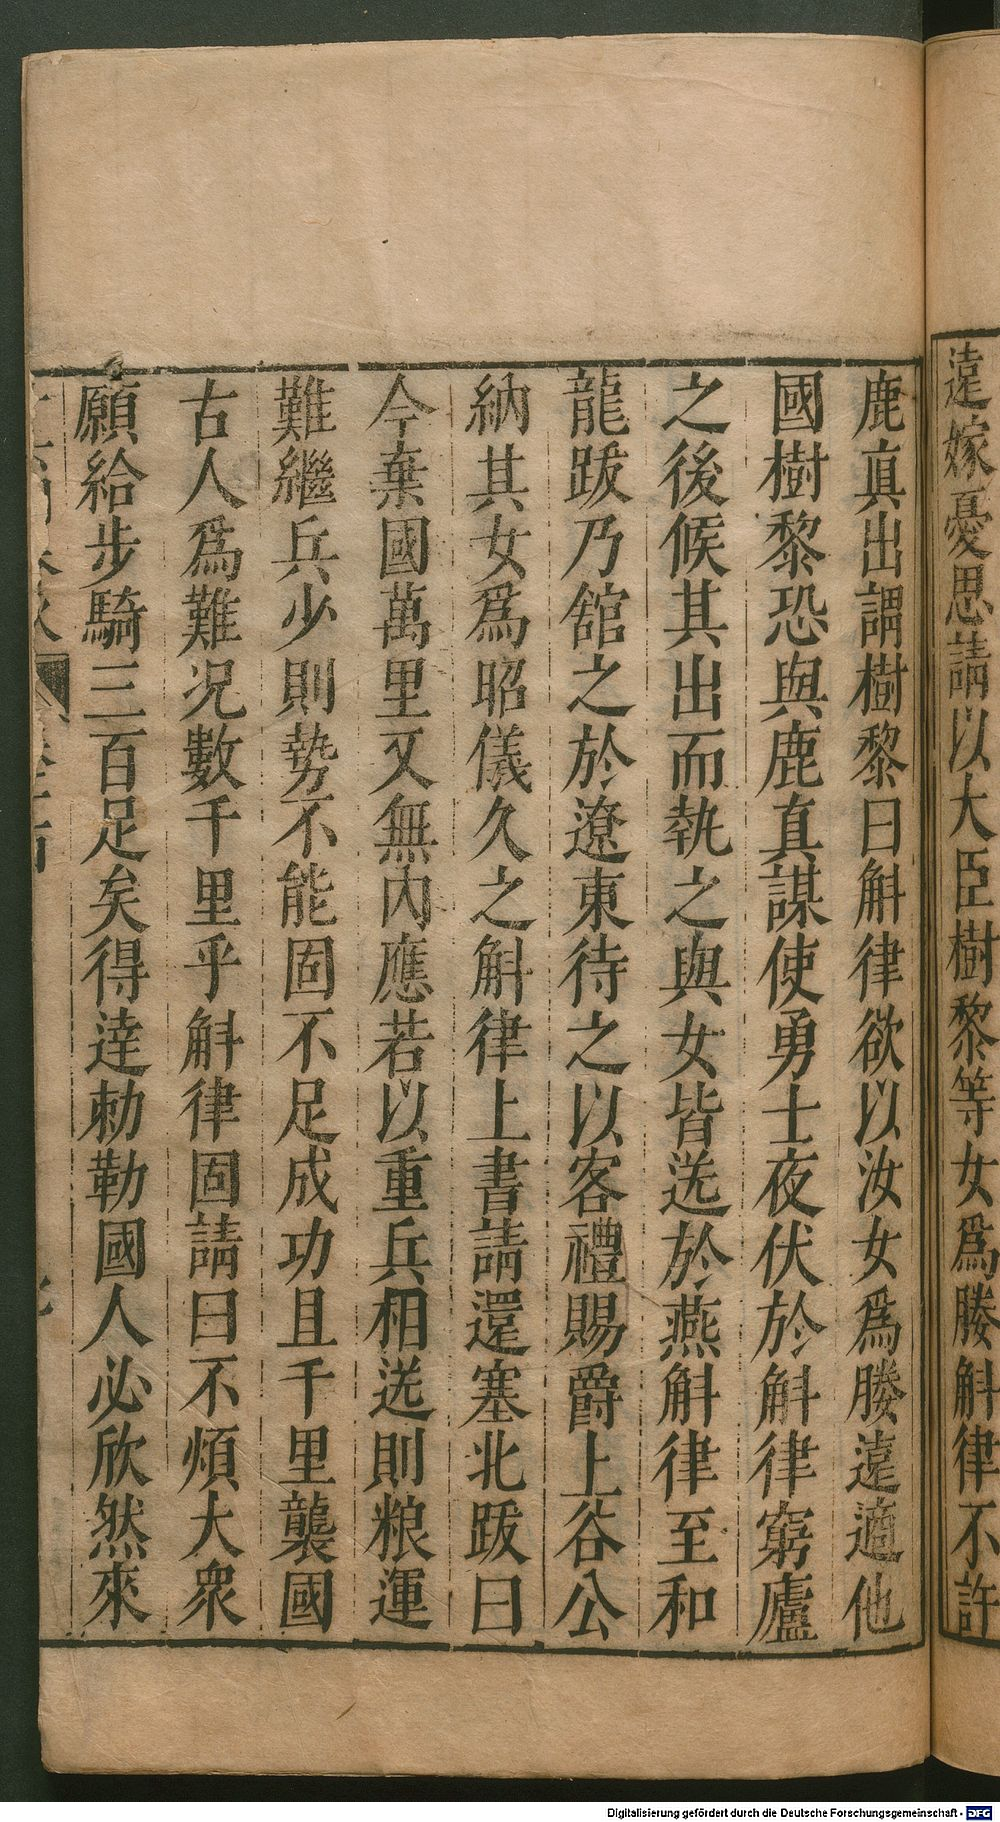 遠嫁憂思請以大臣樹黎等女爲媵斛律不許
鹿真出謂樹黎曰斛律欲以汝女爲媵遠適他
國樹黎恐與鹿真謀使勇士夜伏於斛律窮廬
之後候其出而執之與女皆送於燕斛律至和
龍跋乃舘之於遼東待之以客禮賜爵上谷公
納其女爲昭儀久之斛律上書請還塞北跋曰
今棄國萬里又無內應若以重兵相送則粮運
難繼兵少則勢不能固不足成功且千里襲國
古人爲難况數千里乎斛律固請曰不煩大衆
願給步騎三百足矣得達勅勒國人必欣然來
Digitalisierung gefördert durch die Deutsche Forschungsgemeinschaft - DFG